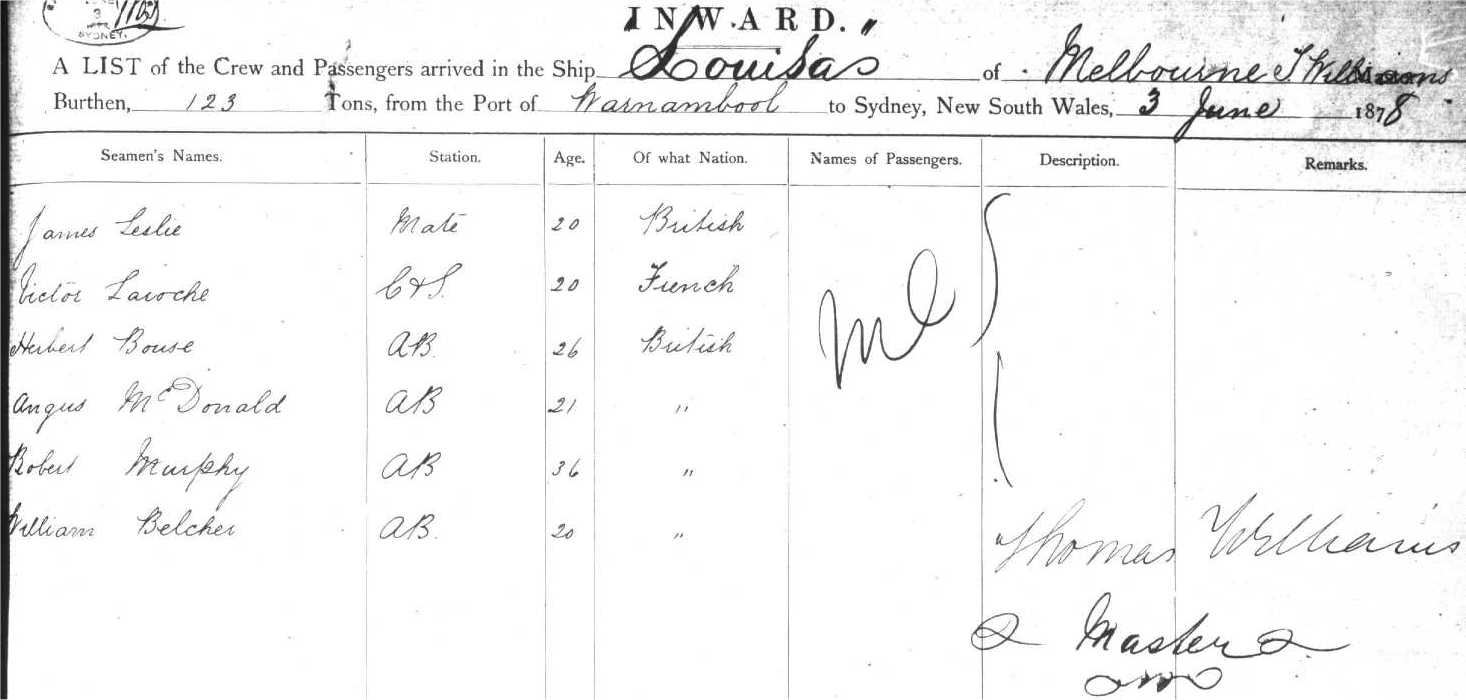 SYDNEY.
INWARD.
A LIST of the Crew and Passengers arrived in the Ship "Louisa" of Melbourne T Williams
Burthen, 123 Tons, from the Port of Warnambool to Sydney, New South Wales, 3 June 1878
Seamen's Names. Station. Age. Of what Nation. Names of Passengers. Description. Remarks.
James Leslie Mate 20 British
Victor Laroche C & S. 20 French
Herbert Bouse AB. 26 British
Angus McDonald AB 21 "
Robert Murphy AB 36 "
William Belcher AB. 20 "
Thomas Williams
Master